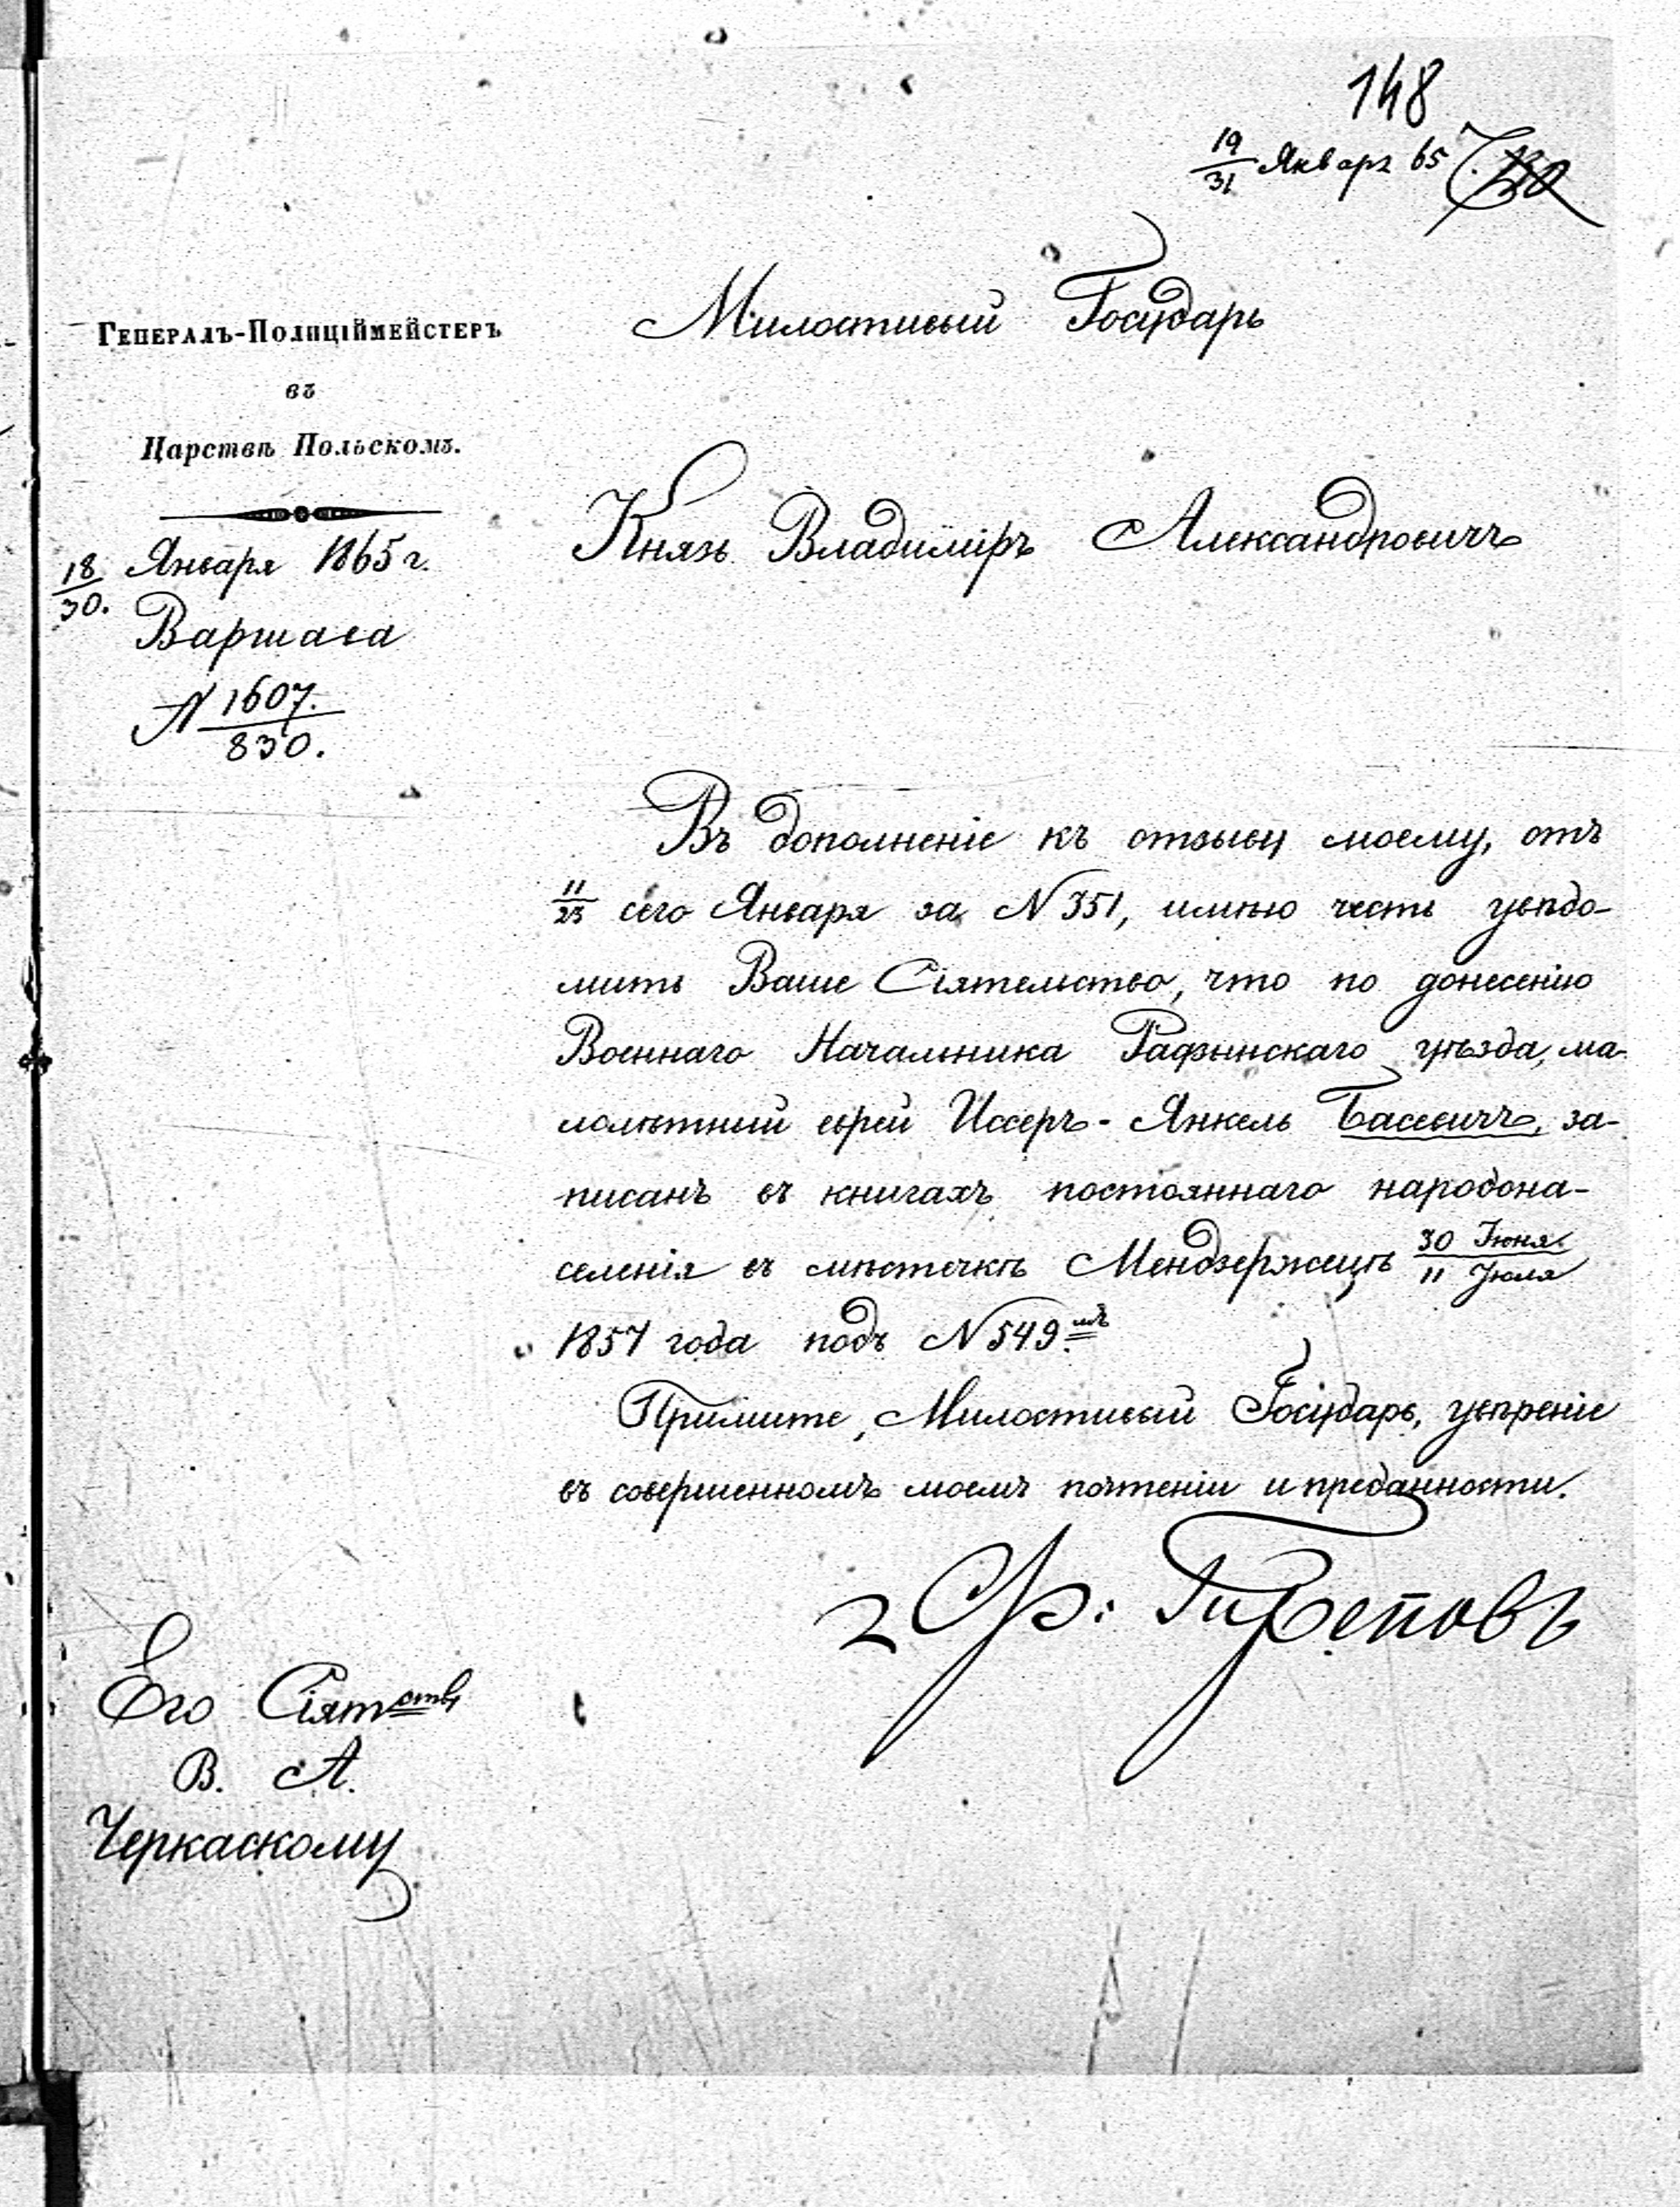 148
19/31 Январь 65
Генералъ-Полиціймейстеръ
въ
Царствѣ Польскомъ.
18/30. Января 1865 г.
Варшава
N 1607./830.
Милостивый Государь
Князь Владиміръ Александровичъ
Въ дополненіе къ отзыву моему, отъ
11/23 сего Января за N 351, имѣю честь увѣдо-
мить Ваше Сіятельство, что по донесенію
Военнаго Начальника Радзынскаго уѣзда, ма-
лолѣтній еврей Иссеръ-Янкель Басевичъ, за-
писанъ въ книгахъ постояннаго народона-
селенія въ мѣстечкѣ Мендзержецѣ 30 Іюня/11 Іюля
1857 года подъ N 549.мъ
Примите, Милостивый Государь, увѣреніе
въ совершенномъ моемъ почтеніи и преданности.
Ѳ: Треповъ
Его Сіятству
В. А.
Черкаскому